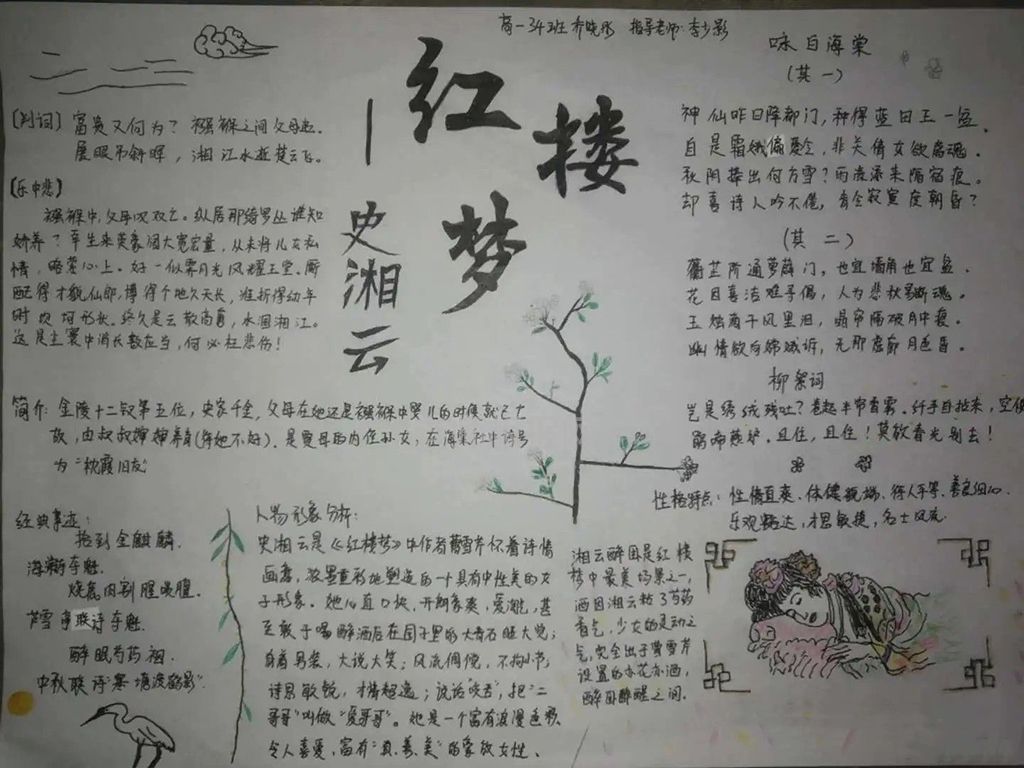 高一34班 乔晓彤 指导老师:李少影
红楼梦
—史湘云
[判词] 富贵又何为?襁褓之间父母违。
展眼吊斜晖,湘江水逝楚云飞。
[乐中悲]
襁褓中,父母叹双亡。纵居那绮罗丛谁知
娇养?幸生来英豪阔大宽宏量,从未将儿女私
情,略萦心上。好一似霁月光风耀玉堂。厮
配得才貌仙郎,博得个地久天长,准折得幼年
时坎坷形状。终久是云散高唐,水涸湘江。
这是尘寰中消长数应当,何必枉悲伤!
简介:金陵十二钗第五位,史家千金,父母在她还是襁褓中婴儿的时候就已亡
故,由叔叔婶婶养育(待她不好)。是贾母的内侄孙女,在海棠社中诗号
为“枕霞旧友”
经典事迹:
拾到金麒麟.
海棠夺魁.
烧鹿肉割腥啖膻.
芦雪亭联诗夺魁.
醉眠芍药裀.
中秋联诗“寒塘渡鹤影”.
人物形象分析:
史湘云是《红楼梦》中作者曹雪芹怀着诗情
画意,浓墨重彩地塑造的一个具有中性美的女
子形象。她心直口快,开朗豪爽,爱淘气,甚
至敢于喝醉酒后在园子里的大青石睡大觉;
身着男装,大说大笑;风流倜傥,不拘小节;
诗思敏锐,才情超逸;说话“咬舌”,把“二
哥哥”叫做“爱哥哥”。她是一个富有浪漫色彩,
令人喜爱,富有“真、善、美”的豪放女性、
咏白海棠
(其一)
神仙昨日降都门,种得蓝田玉一盆。
自是霜娥偏爱冷,非关倩女欲离魂。
秋阴捧出何方雪?雨渍添来隔宿痕。
却喜诗人吟不倦,肯令寂寞度朝昏?
(其二)
蘅芷阶通萝薜门,也宜墙角也宜盆。
花因喜洁难寻偶,人为悲秋易断魂。
玉烛滴干风里泪,晶帘隔破月中痕。
幽情欲向嫦娥诉,无那虚廊月色昏。
柳絮词
岂是绣绒残吐?卷起半帘香雾。纤手自拈来,空使
鹃啼燕妒。且住,且住!莫放春光别去!
性格特点:性情直爽、体健貌端、待人平等、善良细心、
乐观豁达,才思敏捷,名士风流.
湘云醉因是红楼
梦中最美场景之一,
酒因湘云粘了芍药
香气,少女的灵动之
气,完全出于曹雪芹
设置的亦花亦酒,
醉因醉醒之间.